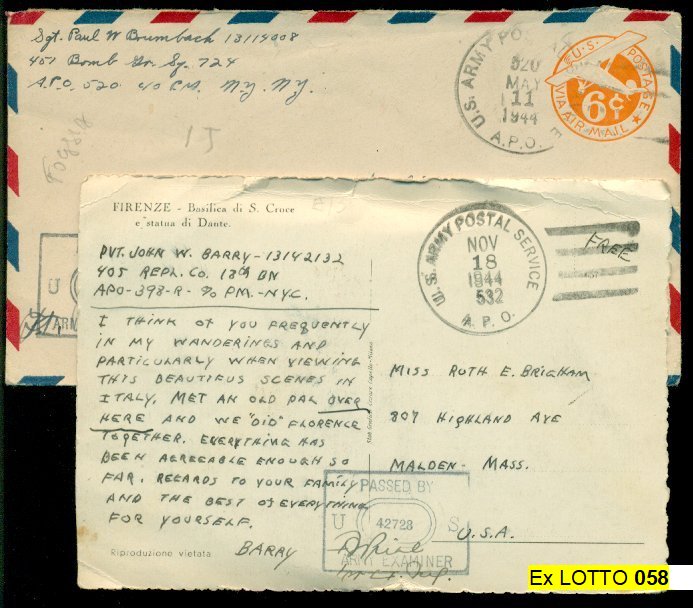 Sgt. Paul W Brumbach 13119008
451 Bomb Gr. Sq. 724
A.P.O. 520 c/o P.M. N.Y. N.Y.
Foggia
15
U.S. ARMY PO
520
MAY
11
1944
A.P.O.
U.S. POSTAGE
6¢
VIA AIR MAIL
U
ARM
FIRENZE - Basilica di S. Croce
e statua di Dante.
PVT. JOHN W. BARRY - 13142132
405 REPL. CO. 18th BN
APO-398-R- % PM.-NYC.
I THINK OF YOU FREQUENTLY
IN MY WANDERINGS AND
PARTICULARLY WHEN VIEWING
THIS BEAUTIFUL SCENES IN
ITALY. MET AN OLD PAL OVER
HERE AND WE "DID" FLORENCE
TOGETHER. EVERYTHING HAS
BEEN AGREEABLE ENOUGH SO
FAR. REGARDS TO YOUR FAMILY
AND THE BEST OF EVERYTHING
FOR YOURSELF.
BARRY
Riproduzione vietata
U.S. ARMY POSTAL SERVICE
NOV
18
1944
532
A.P.O.
FREE
MISS RUTH E. BRIGHAM
807 HIGHLAND AVE
MALDEN - MASS.
U.S.A.
PASSED BY
U 42728 S
ARMY EXAMINER
Ex LOTTO 058